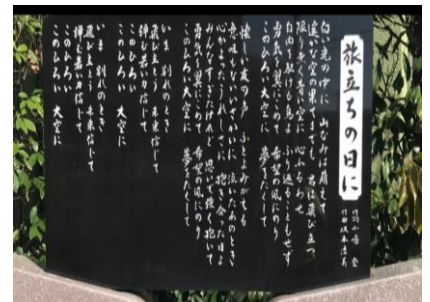 旅立ちの日に
作詞 小嶋 登
作曲 坂本浩美
白い光の中に 山なみは萌えて
遥かな空の果てまでも 君は飛び立つ
限り無く青い空に 心ふるわせ
自由を駆ける鳥よ ふり返ることもせず
勇気を翼にこめて 希望の風にのり
このひろい大空に 夢をたくして
懐しい友の声 ふとよみがえる
意味もないいさかいに 泣いたあのとき
心かよったうれしさに 抱き合った日よ
みんなすぎたけれど 思い出強く抱いて
勇気を翼にこめて 希望の風にのり
このひろい大空に 夢をたくして
いま 別れのとき
飛び立とう 未来信じて
弾む若い力信じて
このひろい
このひろい 大空に
いま 別れのとき
飛び立とう 未来信じて
弾む若い力信じて
このひろい
このひろい 大空に